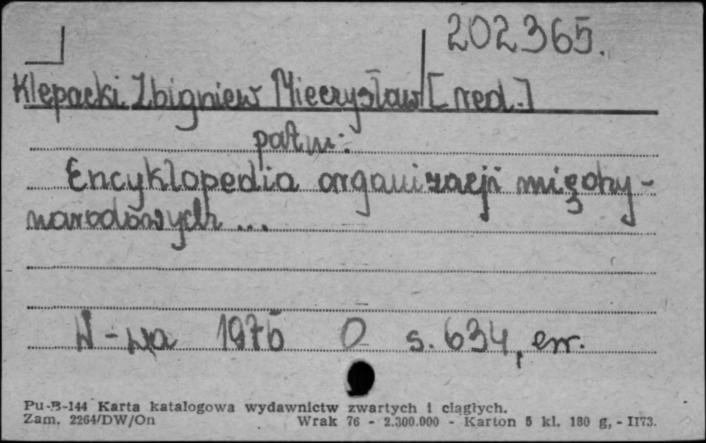 202365.
Klepacki Zbigniew Mieczysław [red.]
patrz:
Encyklopedia organizacji między-
narodowych ...
W-wa 1975 O s. 634, err.
Pu-B-144 Karta katalogowa wydawnictw zwartych i ciągłych.
Zam. 2264/DW/On Wrak 76 - 2.300.000 - Karton 5 kl. 180 g, - II73.